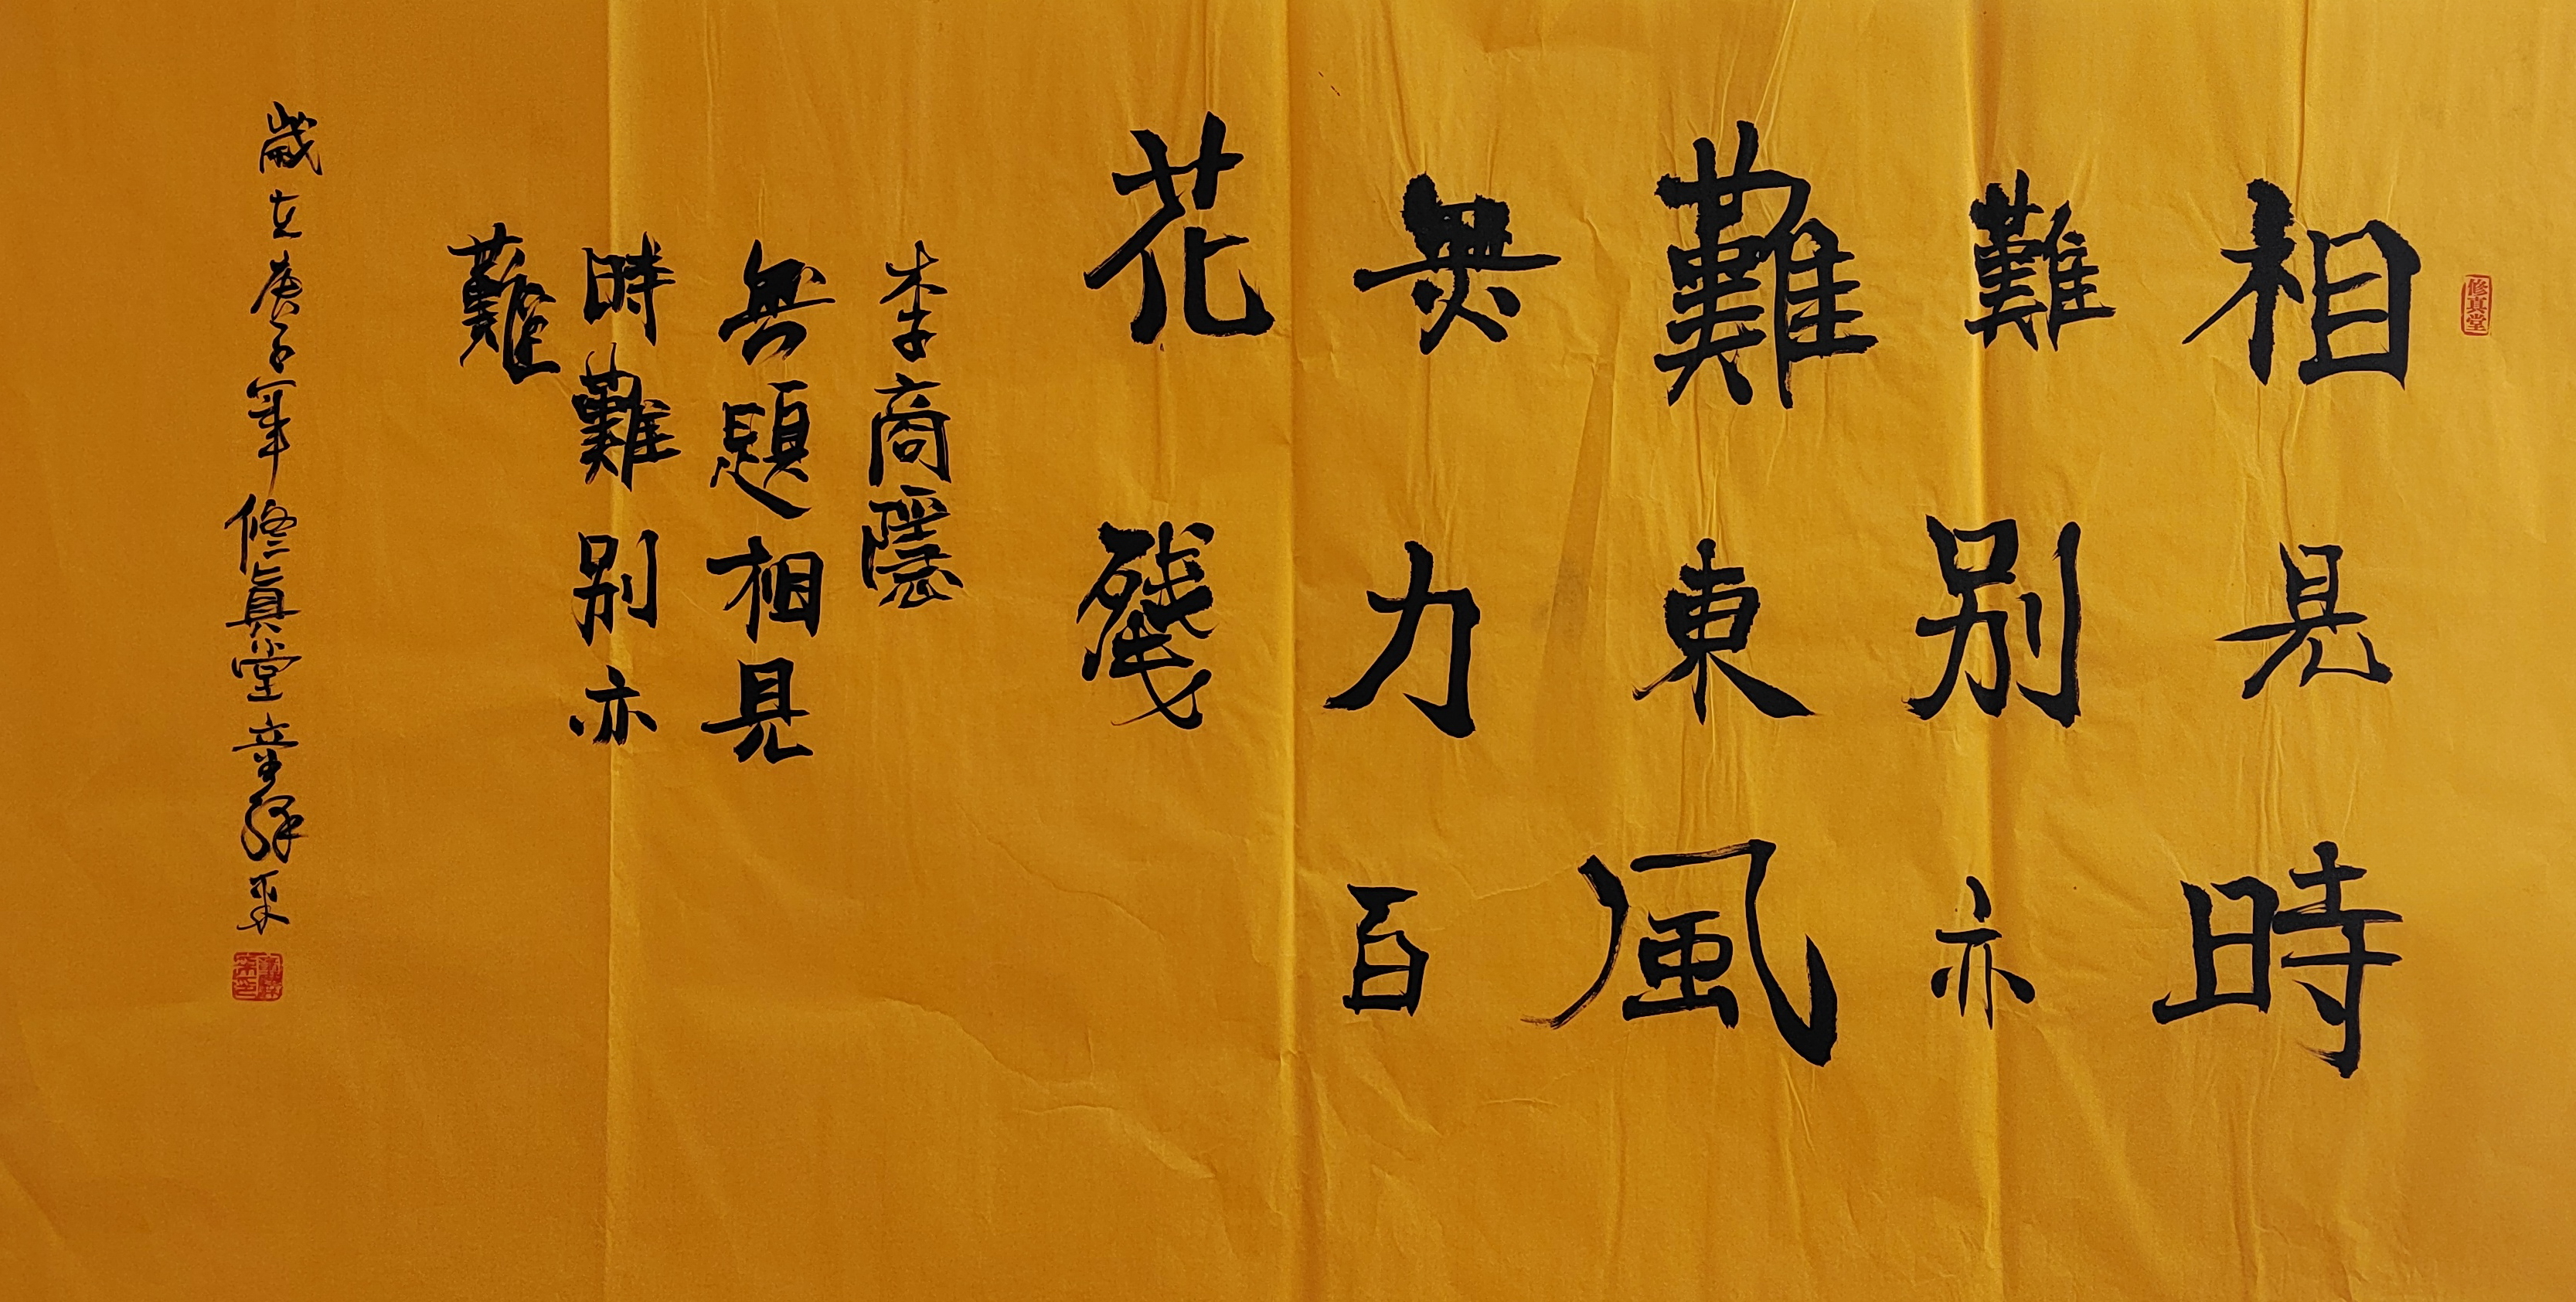 修真堂
相見時
難別亦
難東風
無力百
花殘
李商隱
無題相見
時難別亦
難
歲在庚子年修真堂章